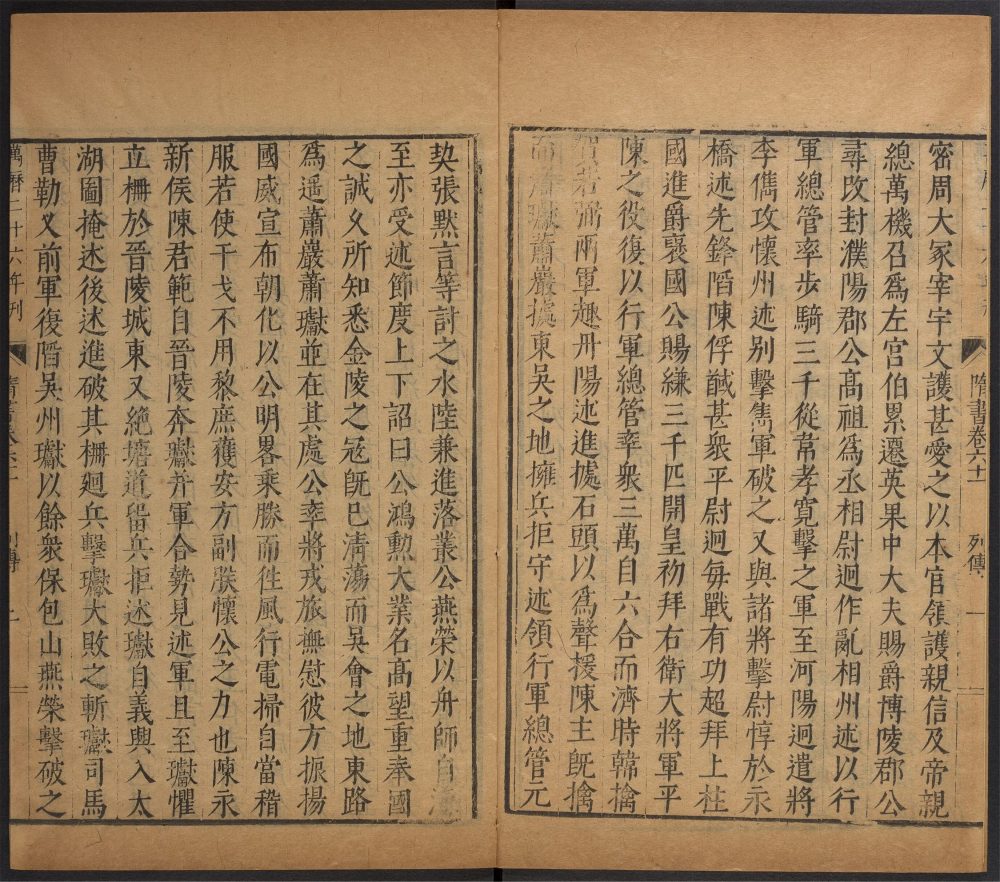 隋書卷六十一 列傳 一
密周大冢宰宇文護甚愛之以本官領護親信及帝親
總萬機召爲左宮伯累遷英果中大夫賜爵博陵郡公
尋改封濮陽郡公高祖爲丞相尉迥作亂相州述以行
軍總管率步騎三千從韋孝寬擊之軍至河陽迥遣將
李儁攻懷州述别擊雋軍破之又與諸將擊尉惇於永
橋述先鋒陷陳俘馘甚衆平尉迥每戰有功超拜上柱
國進爵襃國公賜縑三千匹開皇初拜右衛大將軍平
陳之役復以行軍總管率衆三萬自六合而濟時韓擒
賀若弼兩軍趣丹陽述進據石頭以爲聲援陳主旣擒
而蕭瓛蕭巖據東吳之地擁兵拒守述領行軍總管元
契張默言等討之水陸兼進落叢公燕榮以舟師自海
至亦受述節度上下詔曰公鴻勲大業名高望重奉國
之誠久所知悉金陵之寇旣已淸蕩而吳會之地東路
爲遥蕭巖蕭瓛並在其處公率將戎旅撫慰彼方振揚
國威宣布朝化以公明畧乘勝而徃風行電掃自當稽
服若使干戈不用黎庶獲安方副朕懷公之力也陳永
新侯陳君範自晉陵奔瓛并軍合勢見述軍且至瓛懼
立柵於晉陵城東又絶塘道留兵拒述瓛自義興入太
湖圖掩述後述進破其柵廻兵擊瓛大敗之斬瓛司馬
曹勒叉前軍復陷吳州瓛以餘衆保包山燕榮擊破之
萬曆二十六年刋